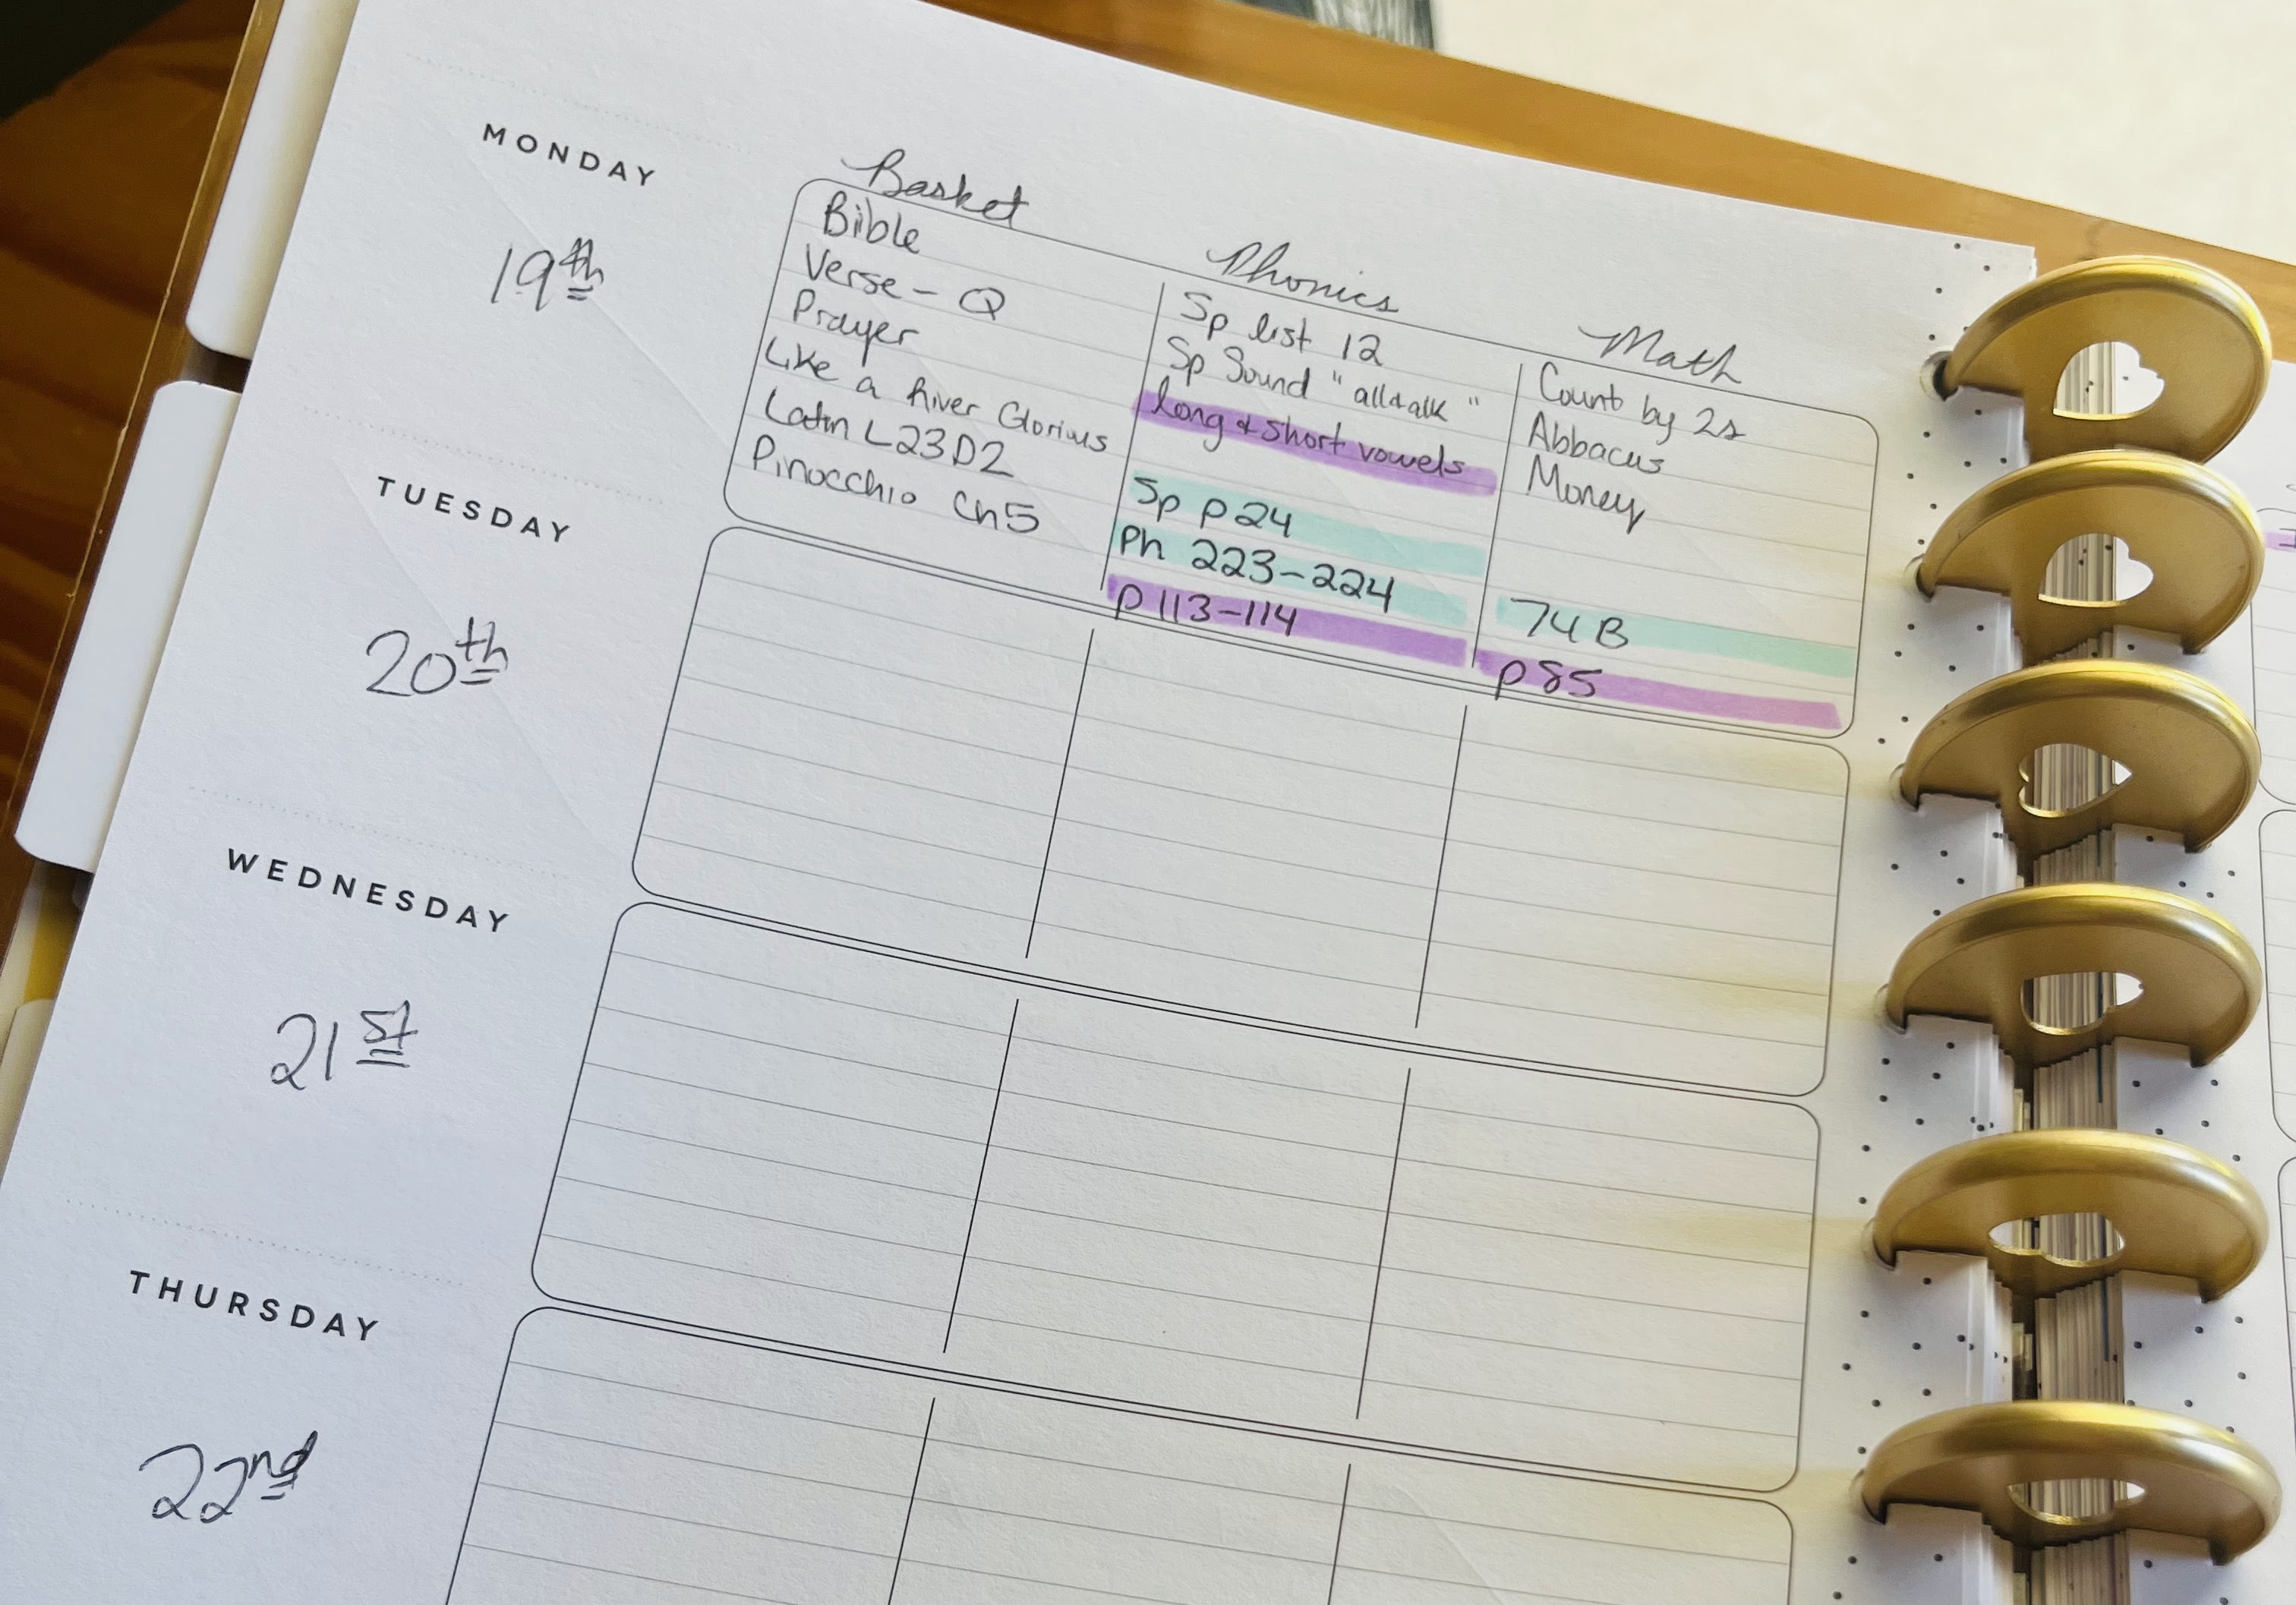 MONDAY
19th
Basket
Bible
Verse - Q
Prayer
Like a River Glorious
Latin L23D2
Pinocchio Ch5
Phonics
Sp list 12
Sp Sound "all+alk"
long + short vowels
Sp p24
Ph 223-224
p 113-114
Math
Count by 2s
Abbacus
Money
74B
p 85
TUESDAY
20th
WEDNESDAY
21st
THURSDAY
22nd